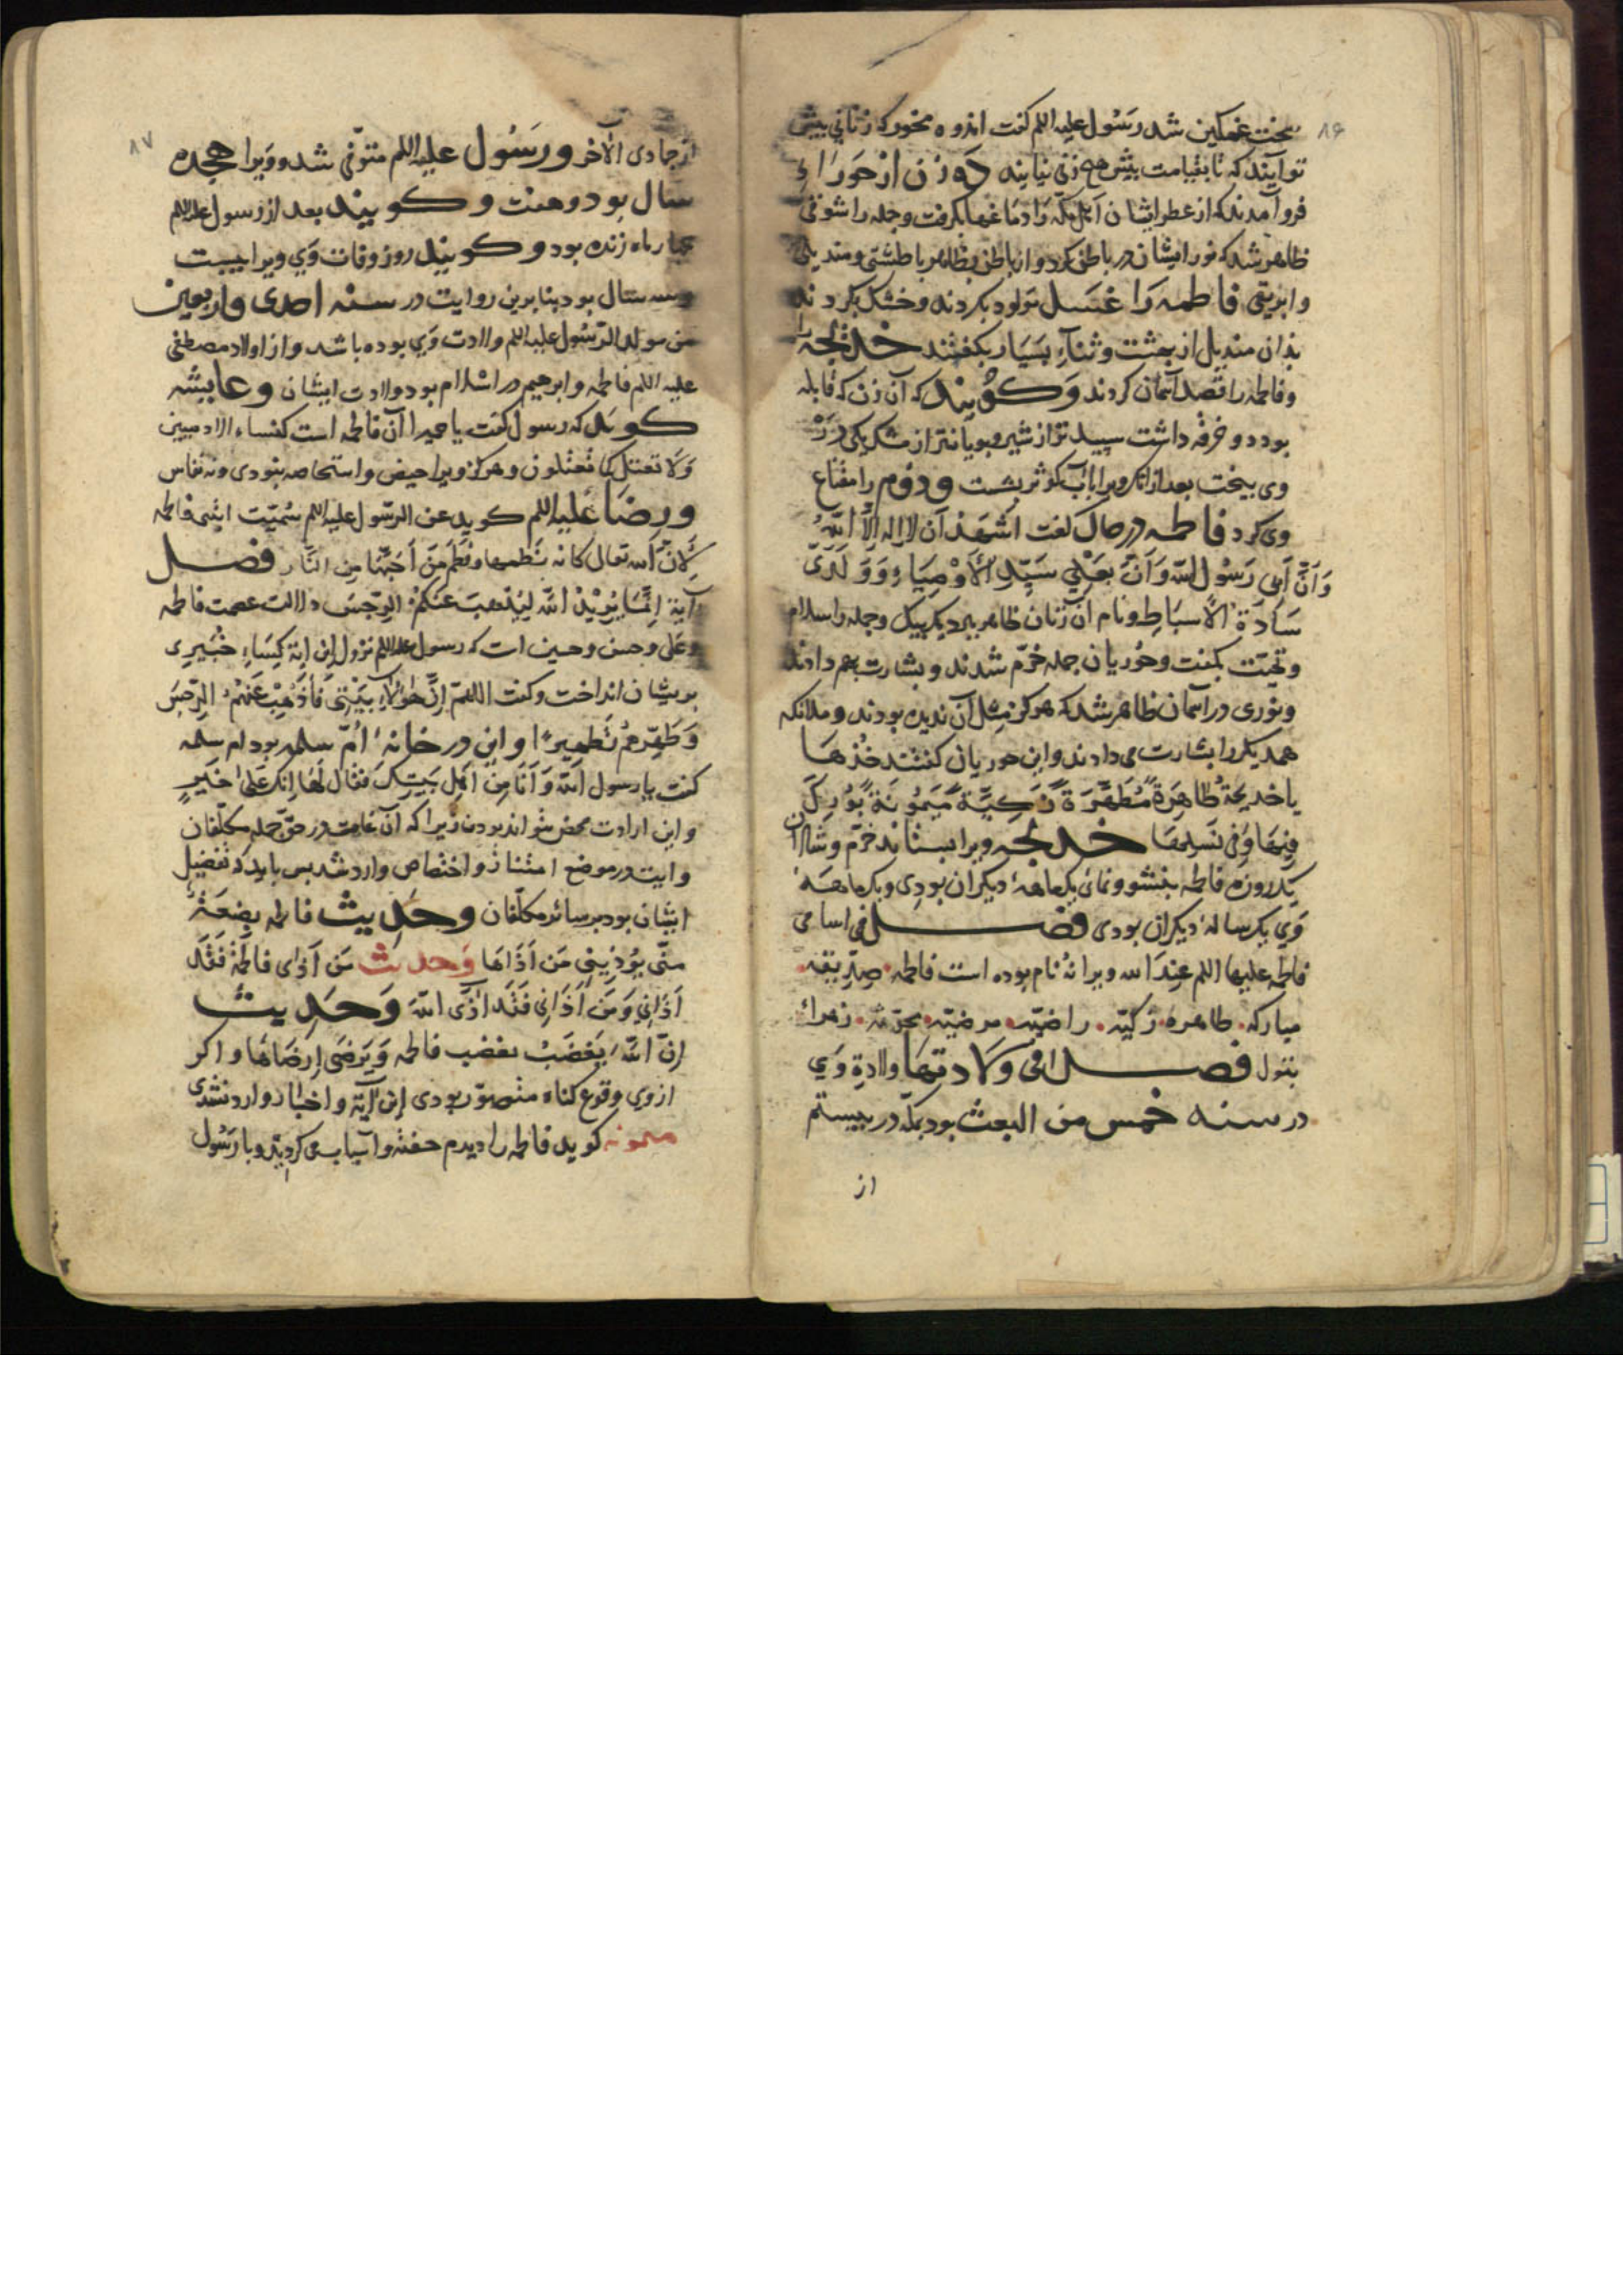 ۸۶
سخت غمکین شد رسول علیه اللم کفت اندوه مخور که زنانی پیش
تو آیند که تا بقیامت پیش هیچ زنی نیایند ده زن از حوراء
فرو آمدند که از عطر ایشان اهل مکه را دماغها بگرفت و جمله را شوقی
ظاهر شد که نور ایشان در باطن کرد و از باطن بظاهر با طشتی و مندیلی
و ابریقی فاطمه را غسل تولود بکردند و خشک بکردند
بذان مندیل از بهشت و ثناء بسیار بکفتند خدیجه را
و فاطمه را قصد آسمان کردند و کویند که آن زن که قابله
بود دو خرقه داشت سپید تر از شیر و بویاتر از مشک یکی در
وی پیخت بعد از آنک ویرا باب کوثر بشست و دوم را مقناع
وی کرد فاطمه در حال کفت اشهد ان لا اله الا الله
وان ابی رسول الله وان بعلی سید الاوصیاء و ولدی
سادة الاسباط و نام آن زنان ظاهر ببرد یک بیک و جمله را سلام
و تحیت بکفت و حوریان جمله خرم شدند و بشارت بهم دادند
و نوری در آسمان ظاهر شد که هرکز مثل آن ندیده بودند و ملائکه
همدیکر را بشارت می دادند و این حوریان کفتند خذها
یا خدیجة طاهرة مطهرة زکیة میمونة بورک
فیها وفی نسلها خدیجه ویرا بستاند خرم و شادان
یک روزه فاطمه بنشو و نمای یکماهه دیکران بودی و یکماهه
وی یکساله دیکران بودی فصل فی اسامی
فاطمه علیها اللم عند الله ویرا نه نام بوده است فاطمه صدیقه
مبارکه طاهره زکیه راضیه مرضیه محدثه زهراء
بتول فصل فی ولادتها ولادة وی
در سنه خمس من البعث بود بمکه در بیستم
از
۸۷
از جمادی الآخر و رسول علیه اللم متوفی شد و ویرا هجده
سال بود و هفت و کویند بعد از رسول علیه اللم
چهار ماه زنده بود و کویند روز وفات وی ویرا بیست
و سه سال بود بنا برین روایت در سنه احدی واربعین
من مولد الرسول علیه اللم ولادت وی بوده باشد و از اولاد مصطفی
علیه اللم فاطمه و ابرهیم در اسلام بود ولادت ایشان و عایشه
کوید که رسول کفت یا حمیرا آن فاطمه است کنساء الادمیین
ولا تعتل کما تعتلون و هرکز ویرا حیض و استحاضه نبودی و نه نفاس
و رضا علیه اللم کوید عن الرسول علیه اللم سمیت ابنتی فاطمه
لان الله تعالی فطمها وفطم من احبها من النار فصل
آیة انما یرید الله لیذهب عنکم الرجس دلالت عصمت فاطمه
و علی و حسن و حسین است که رسول علیه اللم نزول این آیة کساء خیبری
بریشان انداخت و کفت اللهم ان هؤلاء بیتی فاذهب عنهم الرجس
وطهرهم تطهیرا و این در خانه ام سلمه بود ام سلمه
کفت یا رسول الله وانا من اهل بیتک فقال لها انک علی خیر
و این ارادت محض نتواند بودن زیرا که آن عامست در حق جمله مکلفان
و آیت در موضع امتنان و اختصاص وارد شد پس باید که تفضیل
ایشان بود بر سائر مکلفان و حدیث فاطمه بضعة
منی یؤذینی من آذاها و حدیث من آذی فاطمة فقد
آذانی ومن آذانی فقد آذی الله و حدیث
ان الله یغضب بغضب فاطمه ویرضی لرضاها و اکر
از وی وقوع کناه متصور بودی این آیة و اخبار وارد نشدی
میمونه کوید فاطمه را دیدم خفته و آسیاب می کردید و با رسول